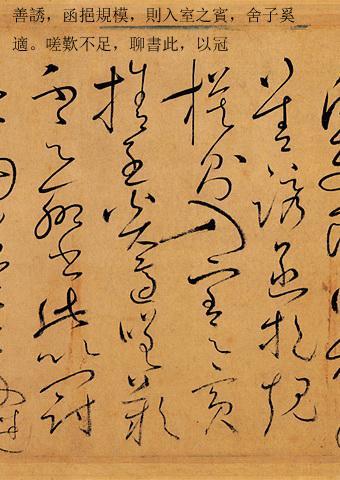 善誘，函挹規模，則入室之賓，舍子奚
適。嗟歎不足，聊書此，以冠
善誘函挹規
模則入室之賓
捨子奚適嗟歎
不足聊書此以冠